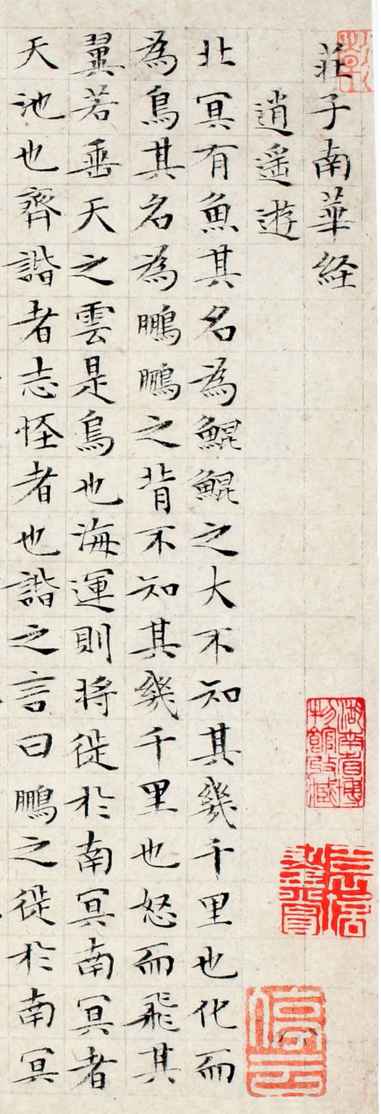 莊子南華経
逍遥遊
北冥有魚其名為鯤鯤之大不知其幾千里也化而
為鳥其名為鵬鵬之背不知其幾千里也怒而飛其
翼若垂天之雲是鳥也海運則将徙於南冥南冥者
天池也齊諧者志怪者也諧之言曰鵬之徙於南冥
湖南省博
物館收藏